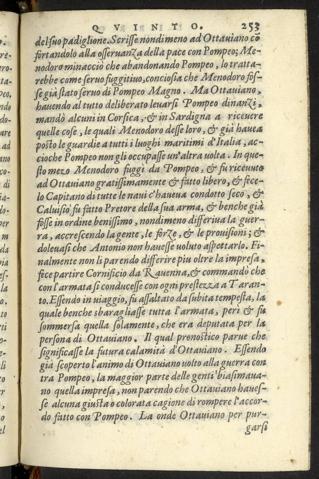 QVINTO. 253
del suo padiglione. Scrisse nondimeno ad Ottauiano cō
fortandolo alla osseruanza della pace con Pompeo; Me-
nodoro minacciò che abandonando Pompeo, lo tratta-
rebbe come seruo fuggitiuo, conciosia che Menodoro fos-
se già stato seruo di Pompeo Magno. Ma Ottauiano,
hauendo al tutto deliberato leuarsi Pompeo dinanzi,
mandò alcuni in Corsica, & in Sardigna a riceuere
quelle cose, le quali Menodoro desse loro, & già hauea
posto le guardie a tutti i luoghi maritimi d'Italia, ac-
cioche Pompeo non gli occupasse un'altra uolta. In que-
sto mezo Menodoro fuggì da Pompeo, & fu riceuuto
ad Ottauiano gratissimamente & fatto libero, & fice-
lo Capitano di tutte le naui c'haueua condotto seco, &
Caluisio fu fatto Pretore della sua arma, & benche già
fosse in ordine benissimo, nondimeno differiua la guer-
ra, accrescendo la gente, le forze, & le prouisioni; &
doleuasi che Antonio non hauesse uoluto aspettarlo. Fi-
nalmente non li parendo differire piu oltre la impresa,
fice partire Cornificio da Rauenna, & commandò che
con l'armata si conducesse con ogni prestezza a Taran-
to. Essendo in uiaggio, fu assaltato da subita tempesta, la
quale benche sbaragliasse tutta l'armata, perì & fu
sommersa quella solamente, che era deputata per la
persona di Ottauiano. Il qual pronostico parue che
significasse la futura calamità d'Ottauiano. Essendo
già scoperto l'animo di Ottauiano uolto alla guerra con
tra Pompeo, la maggior parte delle genti biasimaua-
no quella impresa, non parendo che Ottauiano haues-
se alcuna giusta o colorata cagione di rompere l'accor-
do fatto con Pompeo. La onde Ottauiano per pur-
garsi